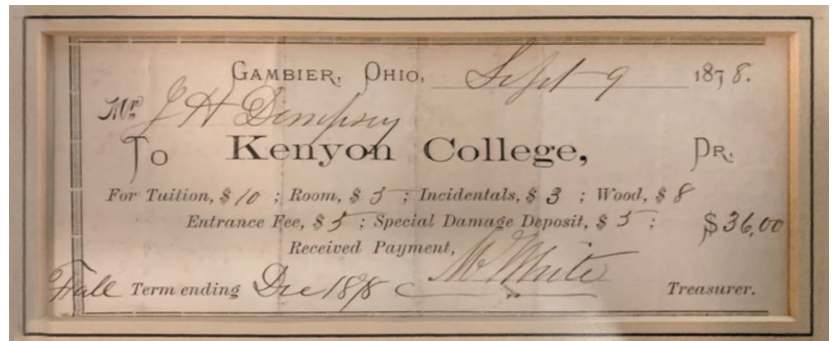 GAMBIER, OHIO, Sept 9 1878.
Mr. J H Dempsey
To Kenyon College, DR.
For Tuition, $ 10 ; Room, $ 5 ; Incidentals, $ 3 ; Wood, $ 8
Entrance Fee, $ 5 ; Special Damage Deposit, $ 5 ; $36,00
Received Payment,
Fall Term ending Dec 1878 M White Treasurer.